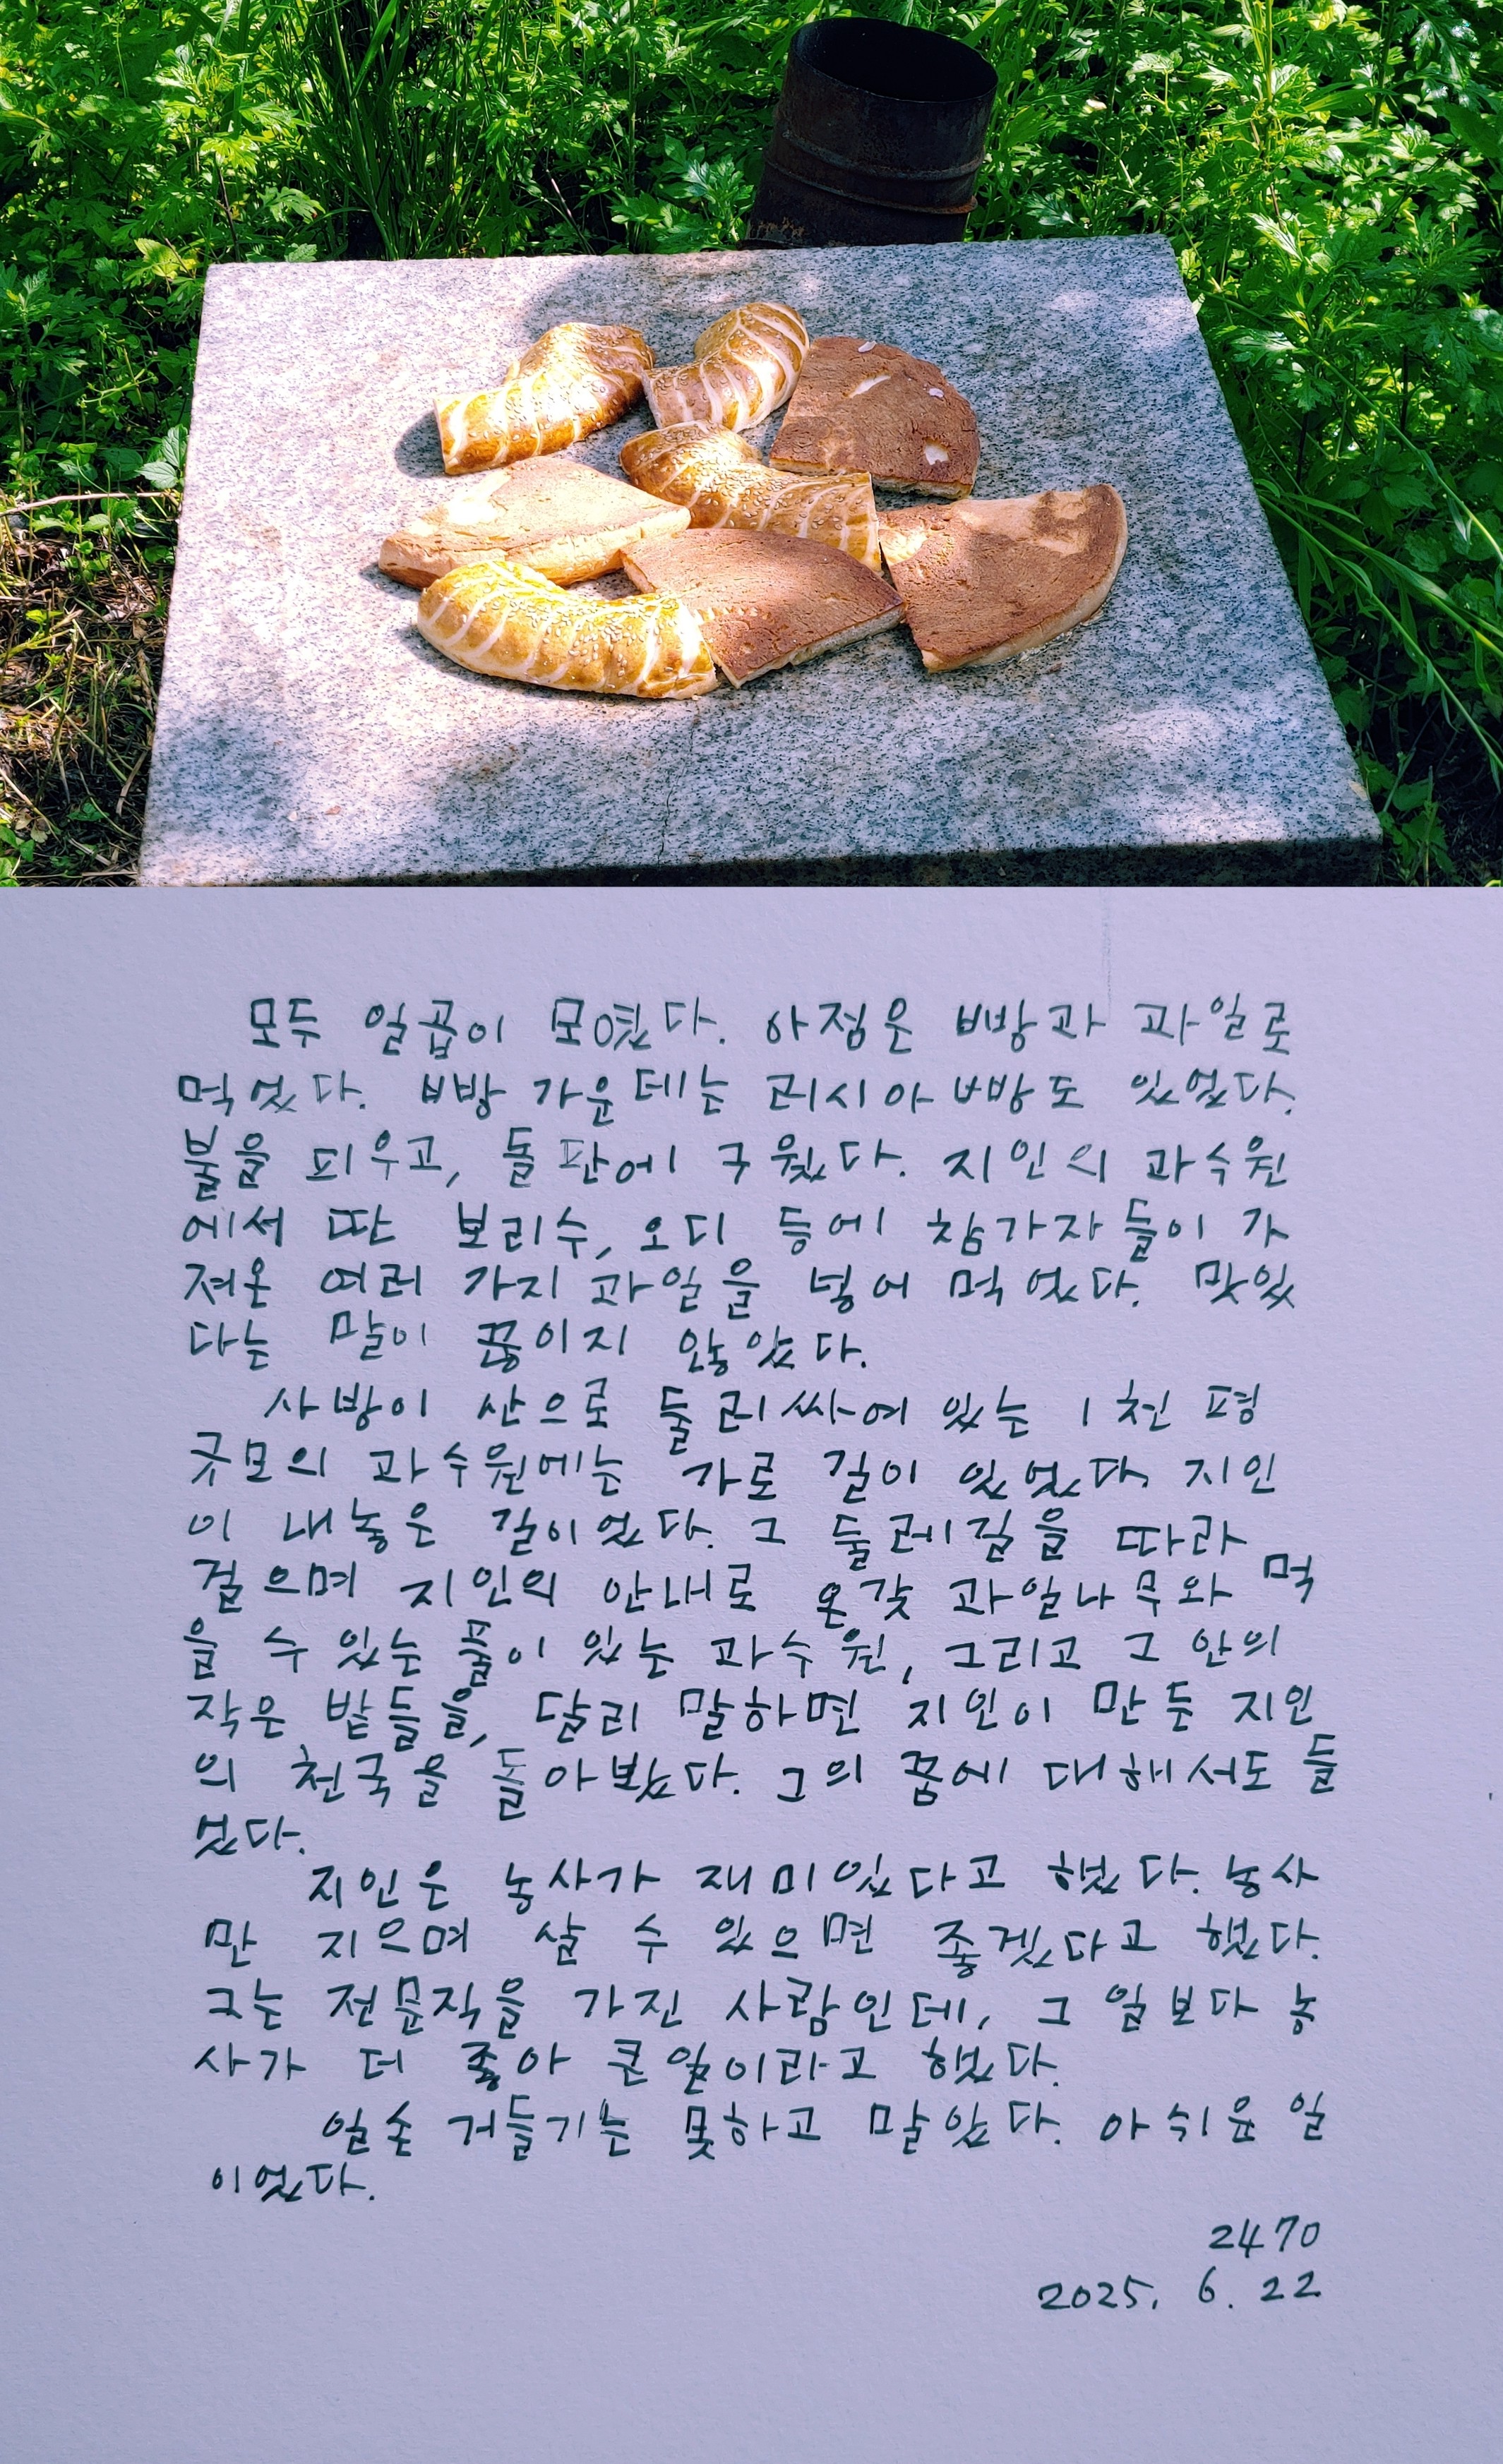 모두 일곱이 모였다. 아점은 빵과 과일로
먹었다. 빵 가운데는 러시아 빵도 있었다.
불을 피우고, 돌판에 구웠다. 지인의 과수원
에서 딴 보리수, 오디 등에 참가자들이 가
져온 여러 가지 과일을 넣어 먹었다. 맛있
다는 말이 끊이지 않았다.
사방이 산으로 둘러싸여 있는 1천 평
규모의 과수원에는 가로 길이 있었다. 지인
이 내놓은 길이었다. 그 둘레길을 따라
걸으며 지인의 안내로 온갖 과일나무와 먹
을 수 있는 풀이 있는 과수원, 그리고 그 안의
작은 밭들을, 달리 말하면 지인이 만든 지인
의 천국을 돌아봤다. 그의 꿈에 대해서도 들
었다.
지인은 농사가 재미있다고 했다. 농사
만 지으며 살 수 있으면 좋겠다고 했다.
그는 전문직을 가진 사람인데, 그 일보다 농
사가 더 좋아 큰일이라고 했다.
일손 거들기는 못하고 말았다. 아쉬운 일
이었다.
2470
2025. 6. 22